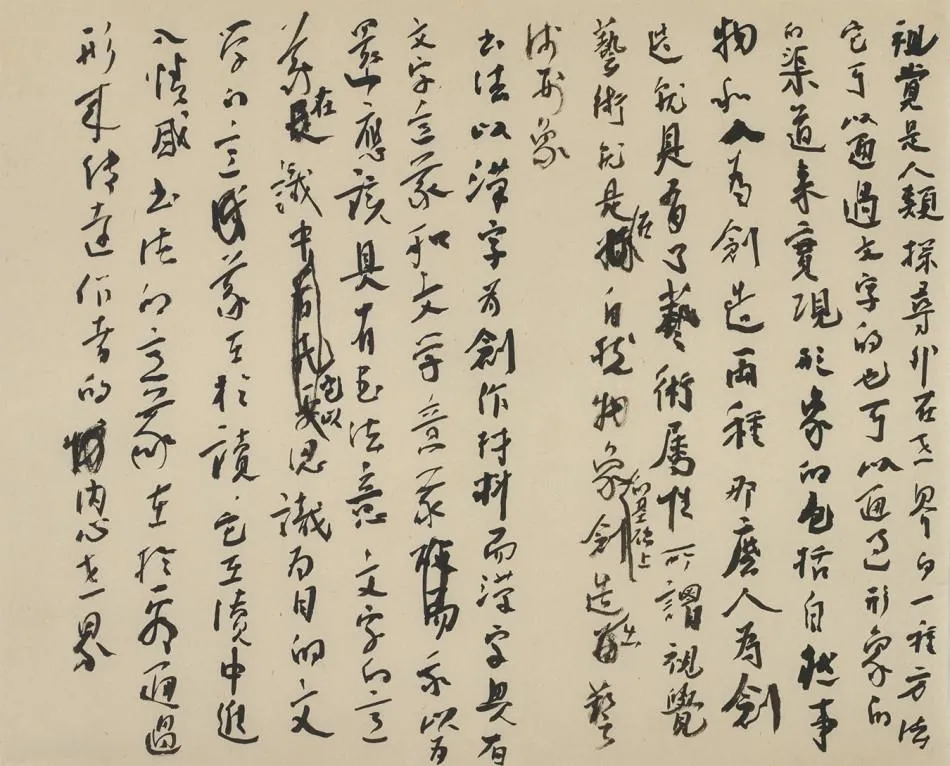 視覺是人類探尋外在世界的一種方法
它可以通過文字的也可以通過形象的
的渠道來實現形象的包括自然事
物和人為創造兩種那麼人為創
造就具有了藝術屬性所謂視覺
藝術就是在自然物象的基礎上創造出藝
術形象
书法以漢字為創作材料而漢字具有
文字意象和文學意象我以為
還應該具有书法意文字的意
象在識中它以識為目的文
学的意象在於讀它在讀中進
入情感书法的意象在於看通過
形來傳達作者的內心世界